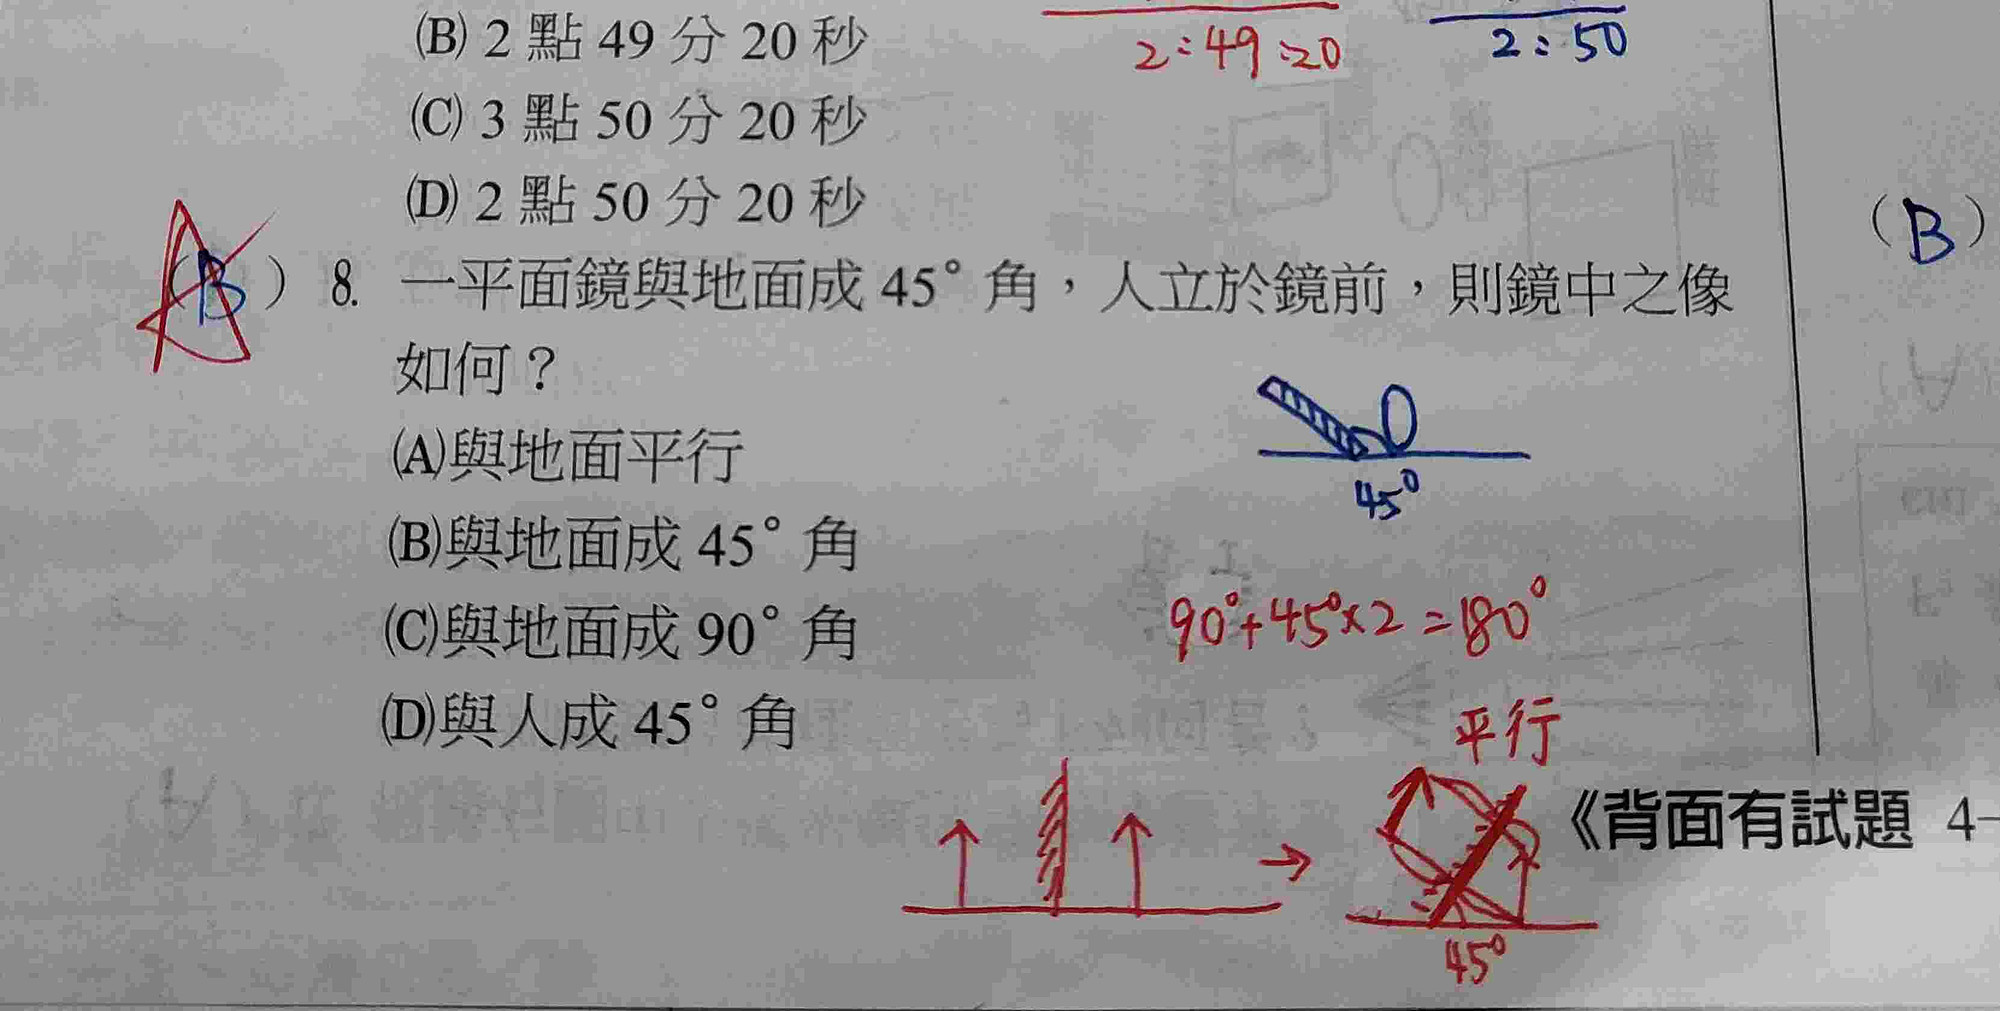 (B) 2 點 49 分 20 秒
2:49:20
2:50
(C) 3 點 50 分 20 秒
(D) 2 點 50 分 20 秒
(B)
A
(B) 8. 一平面鏡與地面成 45° 角，人立於鏡前，則鏡中之像
如何？
(A)與地面平行
45°
(B)與地面成 45° 角
(C)與地面成 90° 角
90°+45°×2=180°
(D)與人成 45° 角
平行
《背面有試題 4-
45°